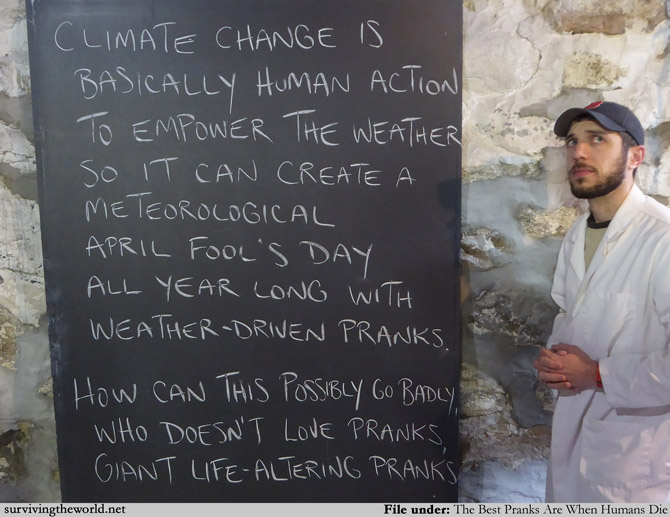 CLIMATE CHANGE IS
BASICALLY HUMAN ACTION
TO EMPOWER THE WEATHER
SO IT CAN CREATE A
METEOROLOGICAL
APRIL FOOL'S DAY
ALL YEAR LONG WITH
WEATHER-DRIVEN PRANKS.
HOW CAN THIS POSSIBLY GO BADLY,
WHO DOESN'T LOVE PRANKS,
GIANT LIFE-ALTERING PRANKS
survivingtheworld.net
File under: The Best Pranks Are When Humans Die